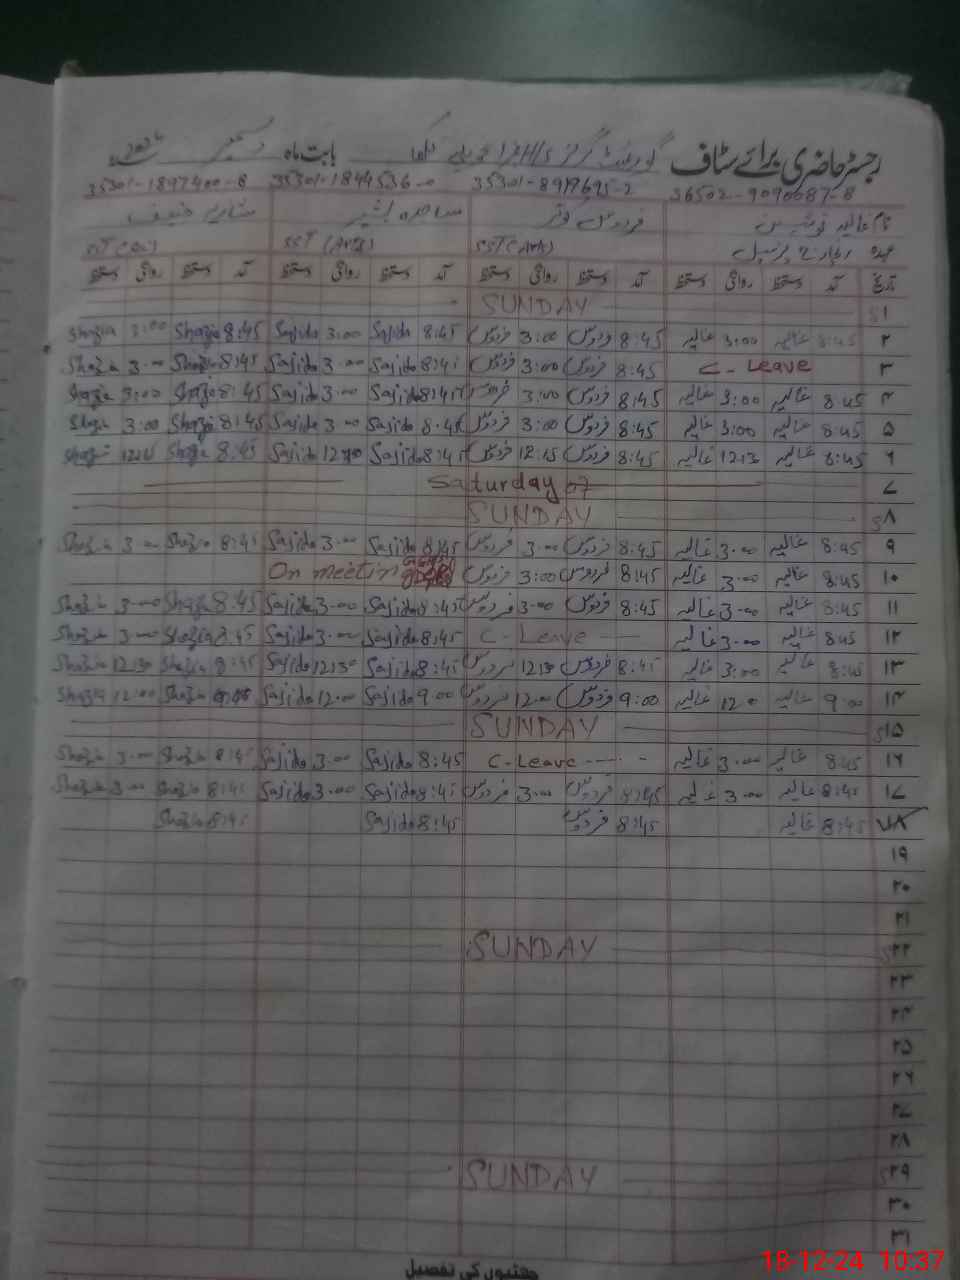 رجسٹر حاضری برائے سٹاف گورنمنٹ گرلز بابت ماہ دسمبر 2024ء
36502-9090087-8 35301-8919695-2 35301-1844536-0 35301-1897400-8
نام عالیہ فردوس کوثر ساجدہ بشیر شازیہ حنیف
عہدہ انچارج پرنسپل SST (Arts) SST (Arts)
تاریخ آمد دستخط روانگی دستخط آمد دستخط روانگی دستخط آمد دستخط روانگی دستخط آمد دستخط روانگی دستخط
S۱ SUNDAY
۲ 8:45 عالیہ 3:00 عالیہ 8:45 فردوس 3:00 فردوس 8:45 Sajida 3:00 Sajida 8:45 Shazia 3:00 Shazia
۳ C-Leave 8:45 فردوس 3:00 فردوس 8:45 Sajida 3.00 Sajida 8:45 Shazia 3.00 Shazia
۴ 8:45 عالیہ 3:00 عالیہ 8:45 فردوس 3:00 فردوس 8:45 Sajida 3.00 Sajida 8:45 Shazia 3:00 Shazia
۵ 8:45 عالیہ 3:00 عالیہ 8:45 فردوس 3:00 فردوس 8.45 Sajida 3.00 Sajida 8:45 Shazia 3:00 Shazia
۶ 8:45 عالیہ عالیہ 8:45 فردوس 12:15 فردوس 8:45 Sajida Sajida 8:45 Shazia Shazia
۷ Saturday 07
S۸ SUNDAY
۹ 8:45 عالیہ 3.00 عالیہ 8:45 فردوس 3.00 فردوس 8:45 Sajida 3.00 Sajida 8:45 Shazia 3.00 Shazia
۱۰ 8:45 عالیہ 3.00 عالیہ 8:45 فردوس 3:00 فردوس On meetin
۱۱ 8:45 عالیہ 3.00 عالیہ 8:45 فردوس 3.00 فردوس 8:45 Sajida 3.00 Sajida 8:45 Shazia 3.00 Shazia
۱۲ 8:45 عالیہ 3.00 عالیہ C-Leave 8:45 Sajida 3.00 Sajida 8:45 Shazia 3.00 Shazia
۱۳ 8:45 عالیہ 3:00 عالیہ 8:45 فردوس 12:30 فردوس 8:45 Sajida 12:30 Sajida 8:45 Shazia 12:30 Shazia
۱۴ 9:00 عالیہ عالیہ 9:00 فردوس 12:00 فردوس 9:00 Sajida 12:00 Sajida Shazia 12:00 Shazia
S۱۵ SUNDAY
۱۶ 8:45 عالیہ 3.00 عالیہ C-Leave 8:45 Sajida 3.00 Sajida 8:45 Shazia 3.00 Shazia
۱۷ 8:45 عالیہ 3.00 عالیہ 8:45 فردوس 3.00 فردوس 8:45 Sajida 3.00 Sajida 8:45 Shazia 3.00 Shazia
۱۸ 8:45 عالیہ 8:45 فردوس 8:45 Sajida 8:45 Shazia
۱۹
۲۰
۲۱
S۲۲ SUNDAY
۲۳
۲۴
۲۵
۲۶
۲۷
۲۸
S۲۹ SUNDAY
۳۰
۳۱
چھٹیوں کی تفصیل
18-12-24 10:37